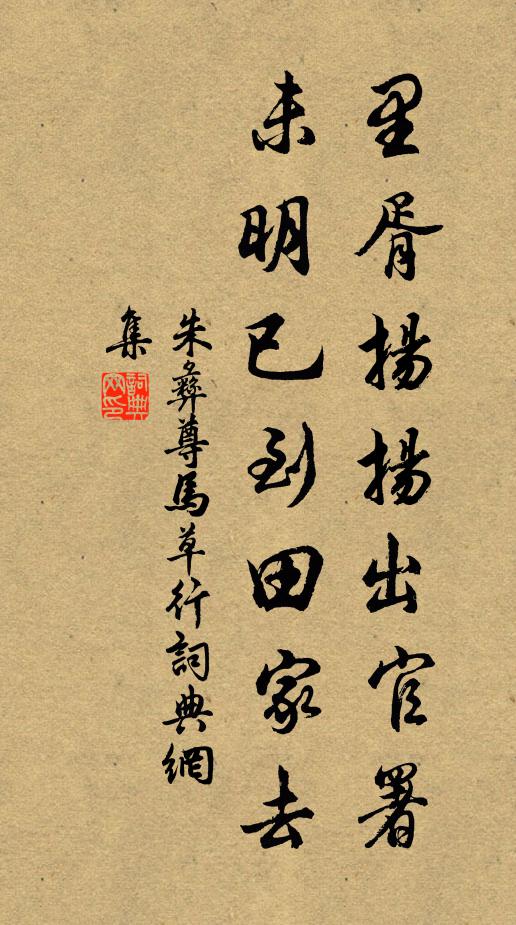 里胥揚揚出官署
未明已到田家去
朱彝尊馬草行詞典網
集
詞典網印